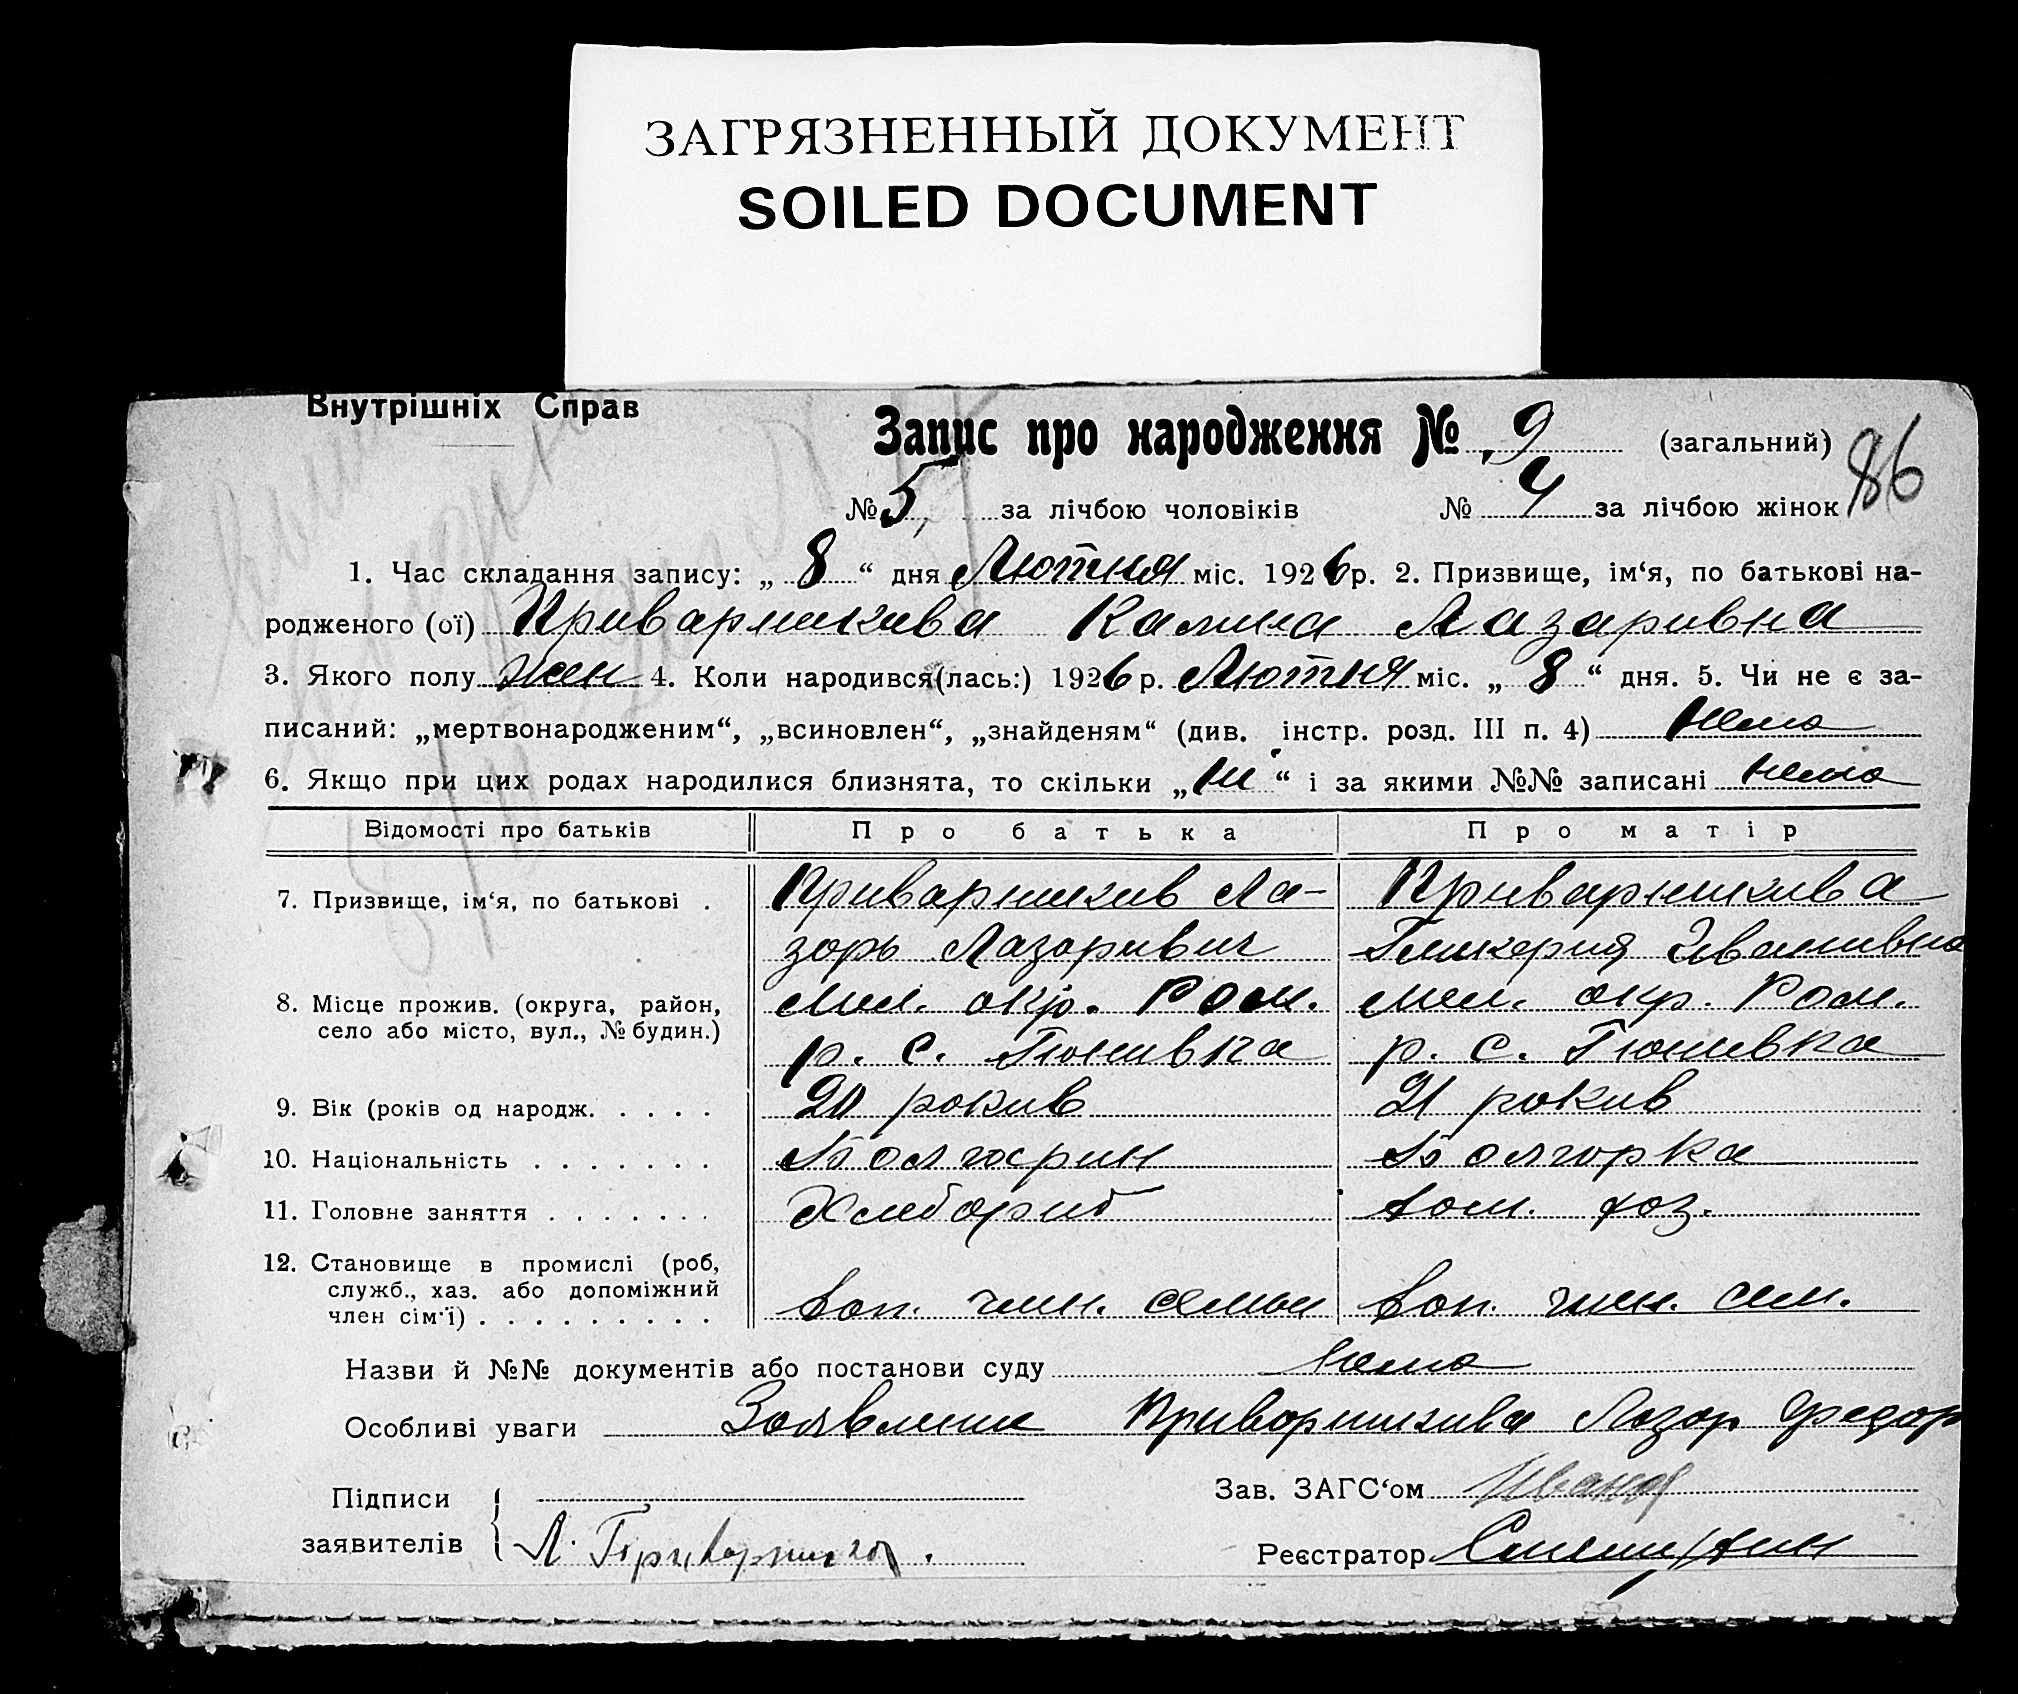 ЗАГРЯЗНЕННЫЙ ДОКУМЕНТ
SOILED DOCUMENT
Внутрішніх Справ
Запис про народження № 9 (загальний) 86
№ 5, за лічбою чоловіків № 4 за лічбою жінок
1. Час складання запису: „ 8 “ дня Лютня міс. 1926 р. 2. Призвище, ім‘я, по батькові на-
родженого (ої) Приварникива Калина Лазаривна
3. Якого полу жен 4. Коли народився(лась:) 1926 р. Лютня міс. „ 8 “ дня. 5. Чи не є за-
писаний: „мертвонародженим“, „всиновлен“, „знайденям“ (див. інстр. розд. III п. 4) нема
6. Якщо при цих родах народилися близнята, то скільки „ ні “ і за якими №№ записані нема
Відомості про батьків Про батька Про матір
7. Призвище, ім‘я, по батькові . Приварникив Ла- Приварникива
зорь Лазоривич Гликерия Иванивна
8. Місце прожив. (округа, район, Мел. окр. Ром. Мел. окр. Ром.
село або місто, вул., № будин.) р. с. Гюнивка р. с. Гюневка
9. Вік (років од народж. . . . . рокив 21 рокив
10. Національність . . . . . . . Болгарин Болгорка
11. Головне заняття . . . . . . . Хлебориб дом. хоз.
12. Становище в промислі (роб,
служб., хаз. або допоміжний
член сім‘ї) . . . . . . . . . доп. член. семьи доп. член. сем.
Назви й №№ документів або постанови суду нема
Особливі уваги Заявление Приворникива Лазор Федор
Підписи Зав. ЗАГС‘ом Иванов
заявителів Л. Реєстратор